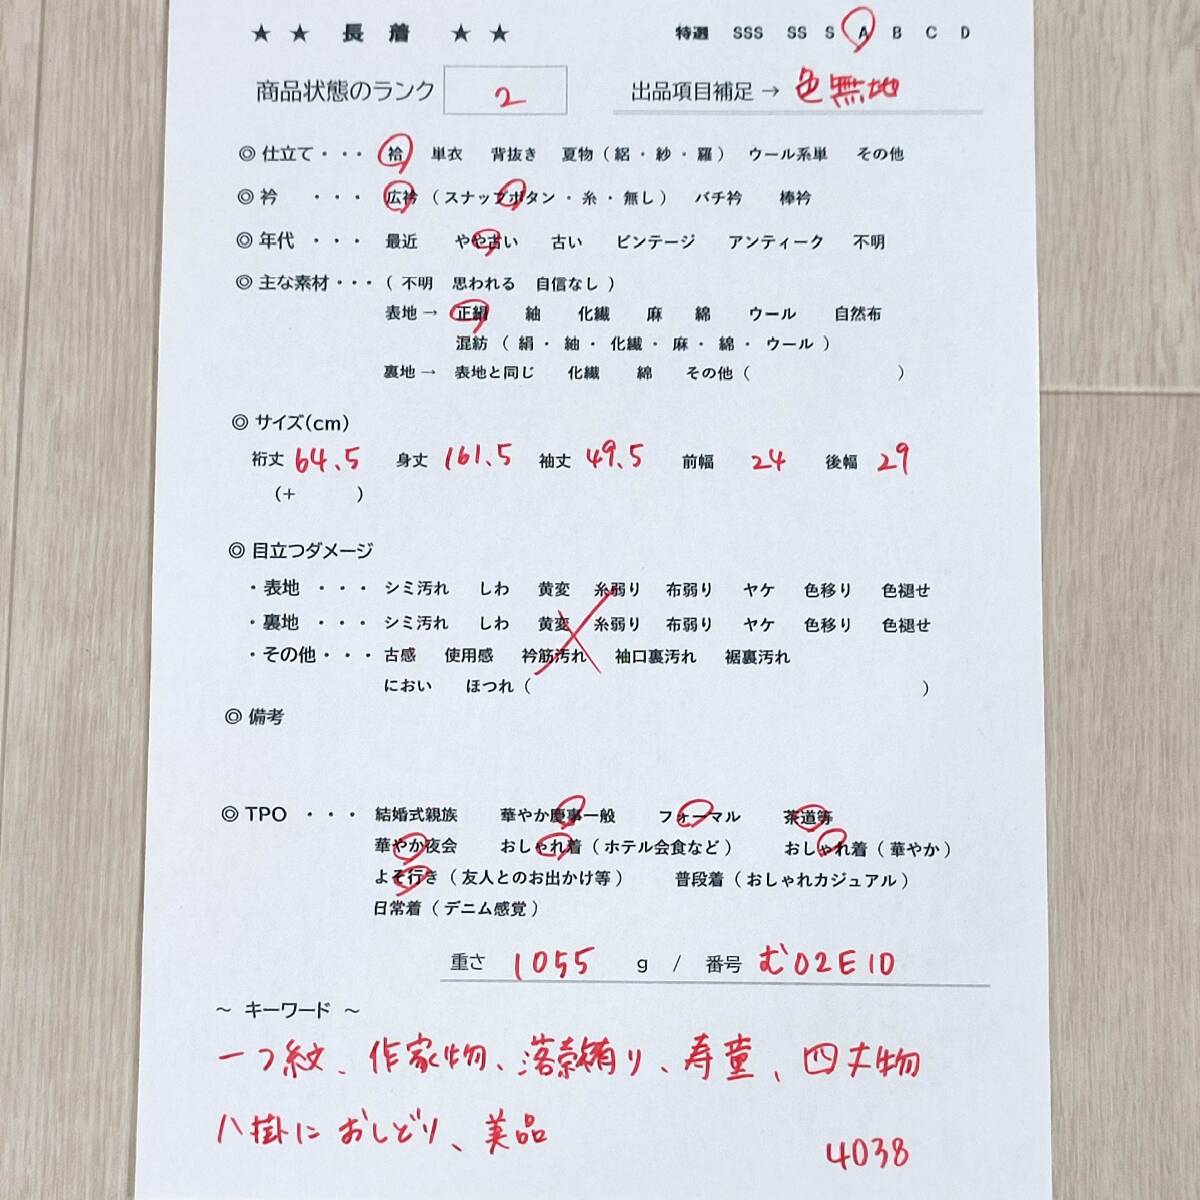 ★ ★ 長 着 ★ ★ 特選 SSS SS S A B C D
商品状態のランク 2 出品項目補足→ 色無地
◎ 仕立て・・・ 袷 単衣 背抜き 夏物(絽・紗・羅) ウール系単 その他
◎ 衿 ・・・ 広衿(スナップボタン・糸・無し) バチ衿 棒衿
◎ 年代 ・・・ 最近 やや古い 古い ビンテージ アンティーク 不明
◎ 主な素材・・・(不明 思われる 自信なし)
表地→ 正絹 紬 化繊 麻 綿 ウール 自然布
混紡(絹・紬・化繊・麻・綿・ウール)
裏地→ 表地と同じ 化繊 綿 その他( )
◎ サイズ(cm)
裄丈 64.5 身丈 161.5 袖丈 49.5 前幅 24 後幅 29
(+ )
◎ 目立つダメージ
・表地 ・・・ シミ汚れ しわ 黄変 糸弱り 布弱り ヤケ 色移り 色褪せ
・裏地 ・・・ シミ汚れ しわ 黄変 糸弱り 布弱り ヤケ 色移り 色褪せ
・その他・・・ 古感 使用感 衿筋汚れ 袖口裏汚れ 裾裏汚れ
におい ほつれ( )
◎ 備考
◎ TPO ・・・ 結婚式親族 華やか慶事一般 フォーマル 茶道等
華やか夜会 おしゃれ着(ホテル会食など) おしゃれ着(華やか)
よそ行き(友人とのお出かけ等) 普段着(おしゃれカジュアル)
日常着(デニム感覚)
重さ 1055 g / 番号 む02E10
～ キーワード ～
一つ紋、作家物、落款有り、寿童、四丈物
八掛に おしどり、美品
4038